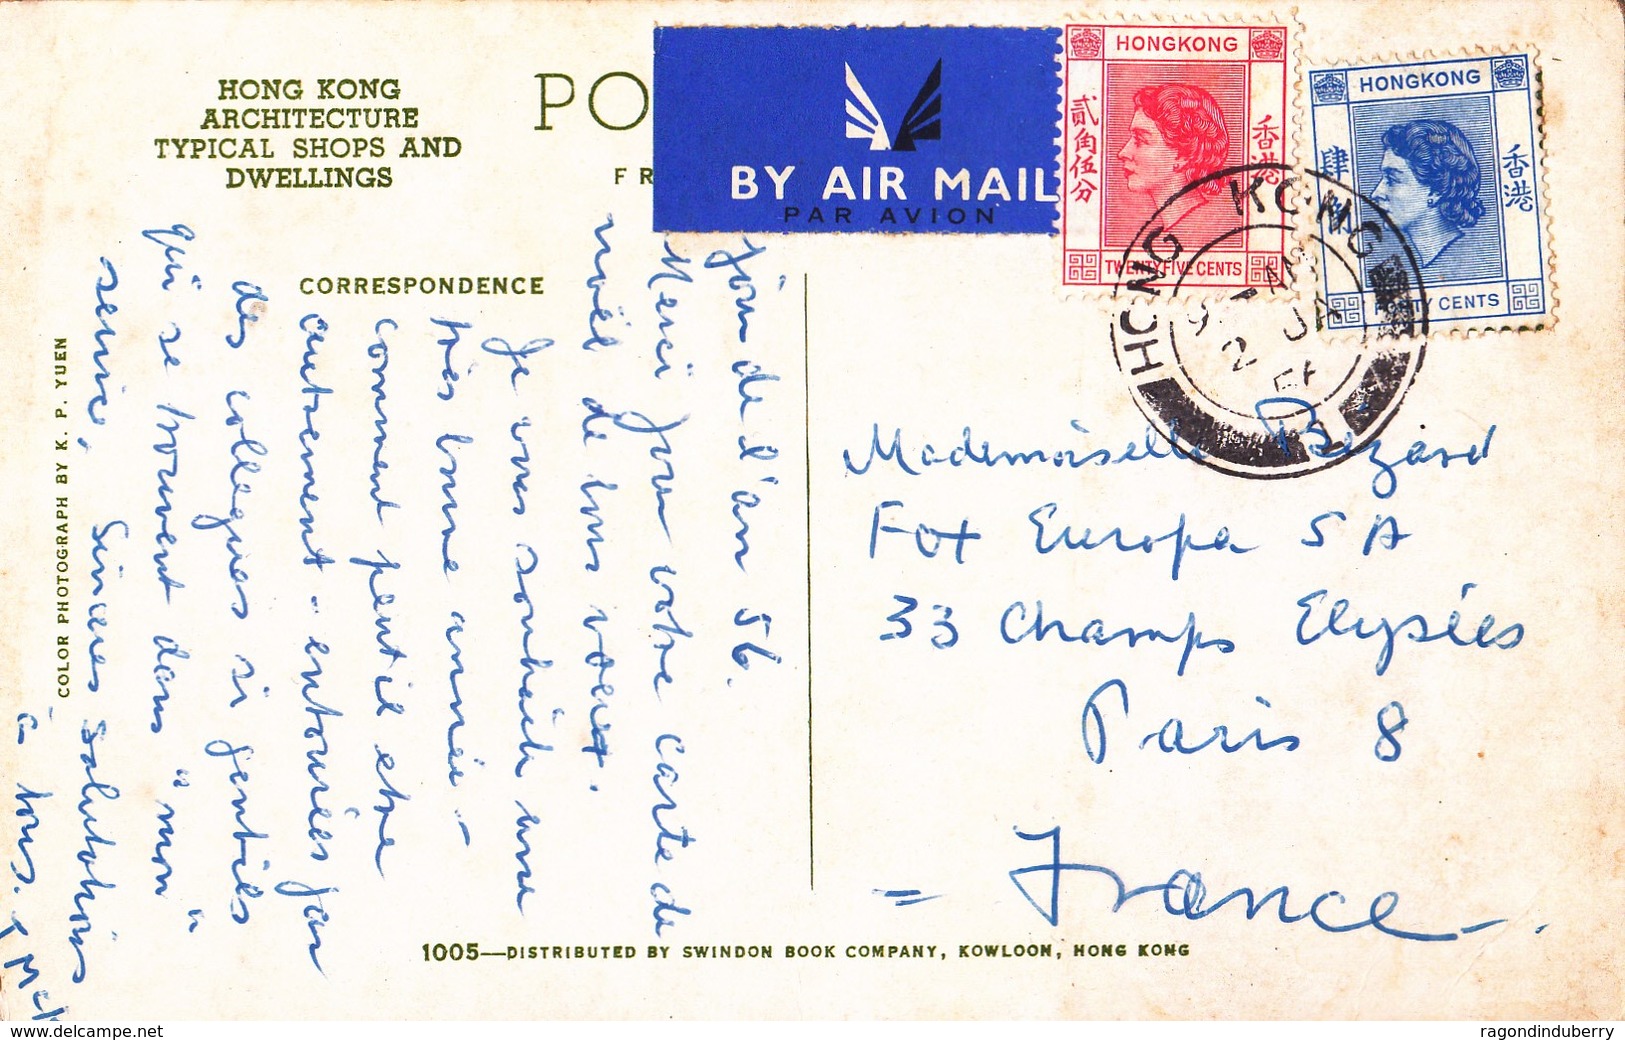 HONG KONG
ARCHITECTURE
TYPICAL SHOPS AND
DWELLINGS
PO
FR
BY AIR MAIL
PAR AVION
HONGKONG
貳角伍分
香港
TWENTYFIVE CENTS
HONGKONG
肆
香港
TY CENTS
HONG KONG
AM
9
2 JA
CORRESPONDENCE
COLOR PHOTOGRAPH BY K. P. YUEN
jour de l'an 56.
Merci pour votre carte de
noël de bons voeux.
Je vous souhaite une
très bonne année -
comment peut il etre
autrement - entourées par
des collegues si gentiles
qui se trouvent dans "mon"
service, Sinceres salutations
à tous.
Mademoiselle Bizard
Fox Europa S A
33 Champs Elysées
Paris 8
France
1005—DISTRIBUTED BY SWINDON BOOK COMPANY, KOWLOON, HONG KONG
www.delcampe.net
ragondinduberry